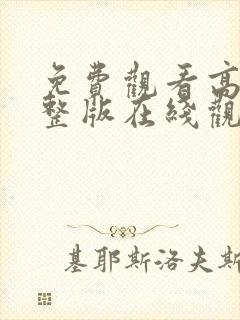 免費觀看高
整版在綫觀
基耶斯洛夫斯